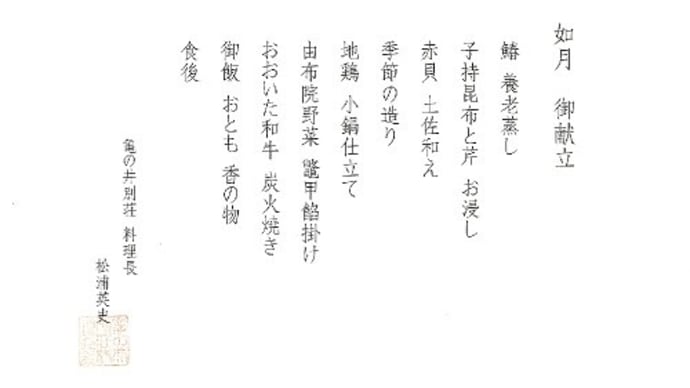 如月 御献立
鰆 養老蒸し
子持昆布と芹 お浸し
赤貝 土佐和え
季節の造り
地鶏 小鍋仕立て
由布院野菜 鼈甲餡掛け
おおいた和牛 炭火焼き
御飯 おとも 香の物
食後
亀の井別荘 料理長
松浦英史